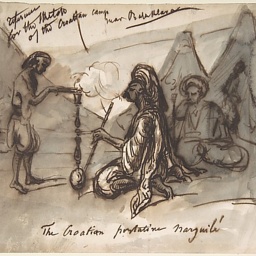 for the Sketch
of the Croatian Camp
near
The Croatian portative Narguilé